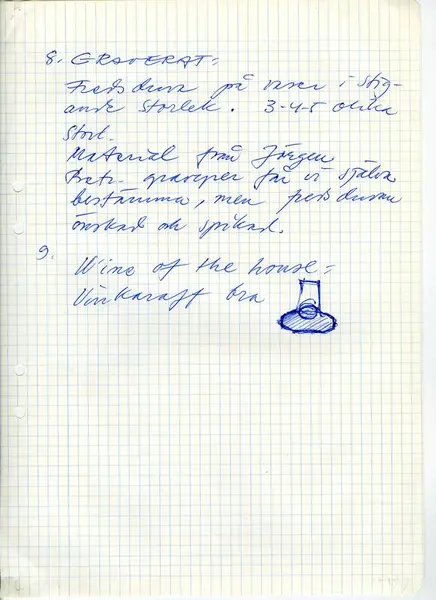 8. GRAVERAT:
Fredsduva på vaser i stig-
ande storlek. 3-4-5 olika
storl.
Material från Jörgen
Betr. graveper får vi själva
bestämma, men fredsduvan
önskad och spikad.
9.
Wine of the house:
Vinkaraff bra